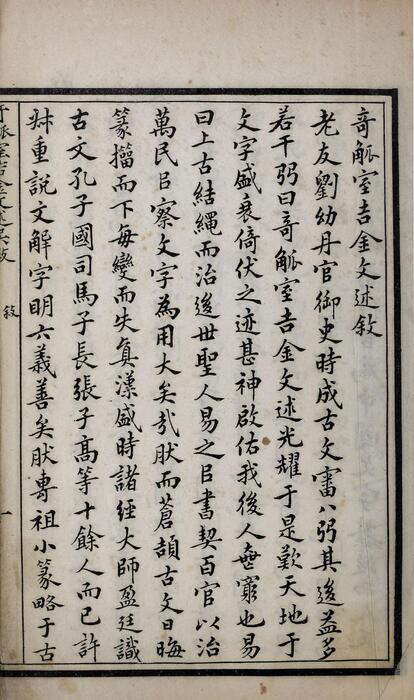 奇觚室吉金文述敘
老友劉幼丹官御史時成古文審八弜其後益多
若干弜曰奇觚室吉金文述光耀于是歎天地于
文字盛衰倚伏之迹甚神啟佑我後人無窮也易
曰上古結繩而治後世聖人易之㠯書契百官以治
萬民㠯察文字為用大矣哉肰而蒼頡古文日晦
篆籀而下每變而失真漢盛時諸經大師盈廷識
古文孔子國司馬子長張子高等十餘人而已許
尗重說文解字明六義善矣肰專祖小篆略于古
奇觚室吉金文述
敘
一